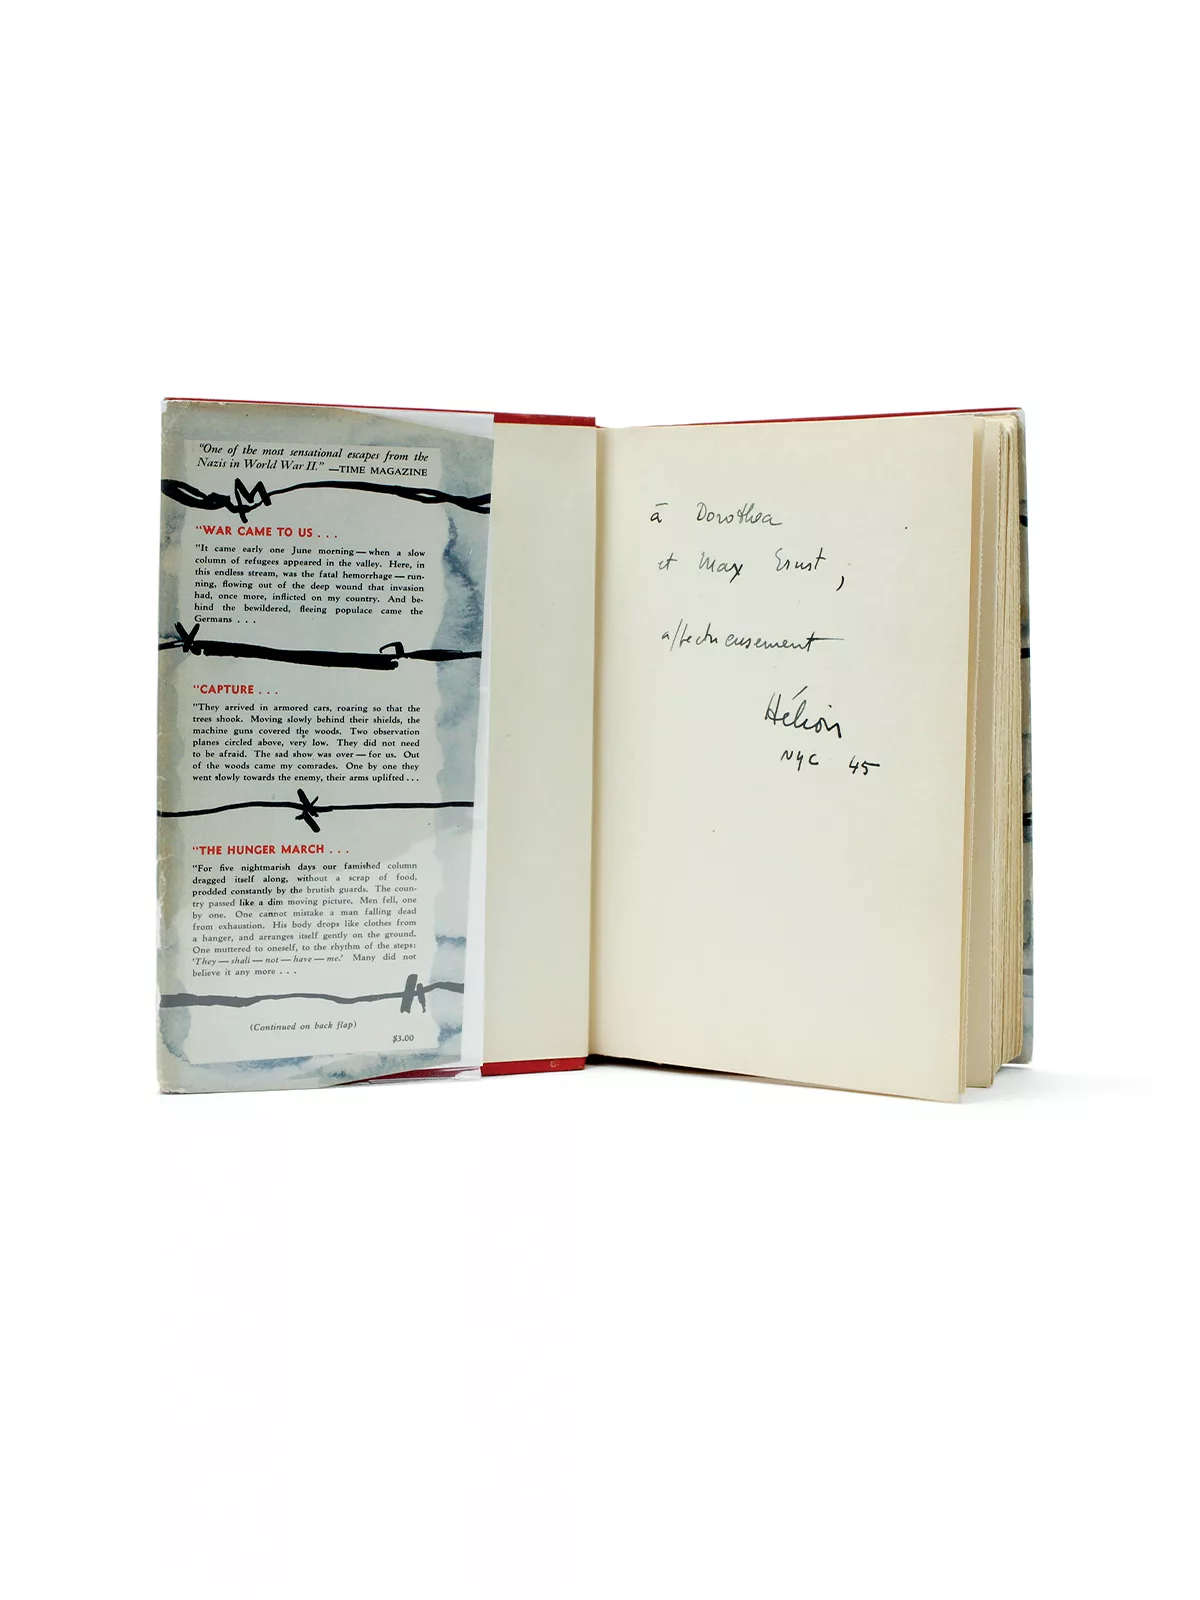 "One of the most sensational escapes from the
Nazis in World War II." —TIME MAGAZINE
"WAR CAME TO US . . .
"It came early one June morning — when a slow
column of refugees appeared in the valley. Here, in
this endless stream, was the fatal hemorrhage — run-
ning, flowing out of the deep wound that invasion
had, once more, inflicted on my country. And be-
hind the bewildered, fleeing populace came the
Germans . . .
"CAPTURE . . .
"They arrived in armored cars, roaring so that the
trees shook. Moving slowly behind their shields, the
machine guns covered the woods. Two observation
planes circled above, very low. They did not need
to be afraid. The sad show was over — for us. Out
of the woods came my comrades. One by one they
went slowly towards the enemy, their arms uplifted . . .
"THE HUNGER MARCH . . .
"For five nightmarish days our famished column
dragged itself along, without a scrap of food,
prodded constantly by the brutish guards. The coun-
try passed like a dim moving picture. Men fell, one
by one. One cannot mistake a man falling dead
from exhaustion. His body drops like clothes from
a hanger, and arranges itself gently on the ground.
One muttered to oneself, to the rhythm of the steps:
'They — shall — not — have — me.' Many did not
believe it any more . . .
(Continued on back flap)
$3.00
à Dorothea
et Max Ernst,
affectueusement
Hélion
NYC 45